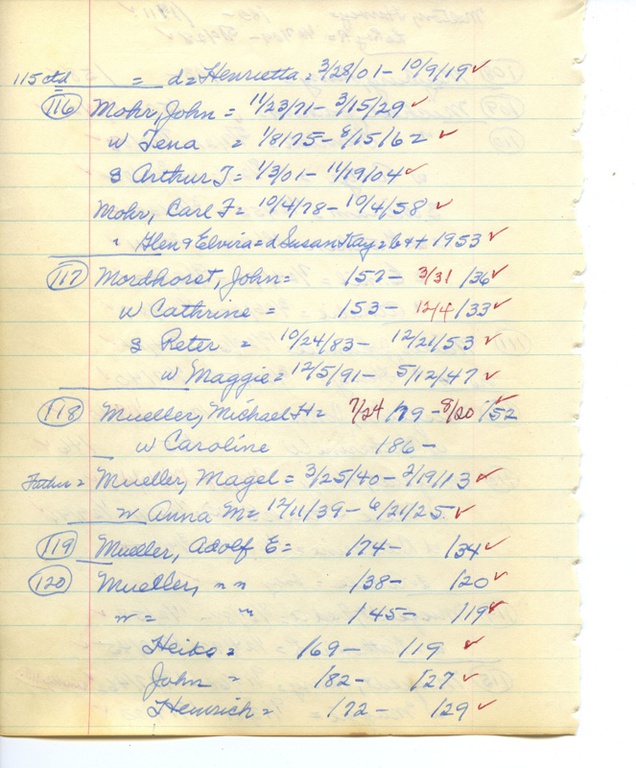 115 ctd = d = Henrietta = 3/28/01 - 10/9/19 ✓
116 Mohr, John = 11/23/71 - 3/15/29 ✓
w Tena = 1/8/75 - 8/15/62 ✓
s Arthur J = 1/3/01 - 11/19/04 ✓
Mohr, Carl F = 10/4/78 - 10/4/58 ✓
" Glen & Elvira = d Susan Kay = b & + 1953 ✓
117 Mordhorst, John = /57 - 3/31/36 ✓
w Cathrine = /53 - 12/4/33 ✓
s Peter = 10/24/83 - 12/21/53 ✓
w Maggie = 12/5/91 - 5/12/47 ✓
118 Mueller, Michael H = 7/24/79 - 8/20/52 ✓
w Caroline /86 -
Father = Mueller, Magel = 3/25/40 - 2/19/13 ✓
w Anna M = 12/11/39 - 6/21/25 ✓
119 Mueller, Adolf E = /74 - /34 ✓
120 Mueller, " " /38 - /20 ✓
w = " /45 - /19 ✓
Heiko = /69 - /19 ✓
John = /82 - /27 ✓
Heinrich = /72 - /29 ✓